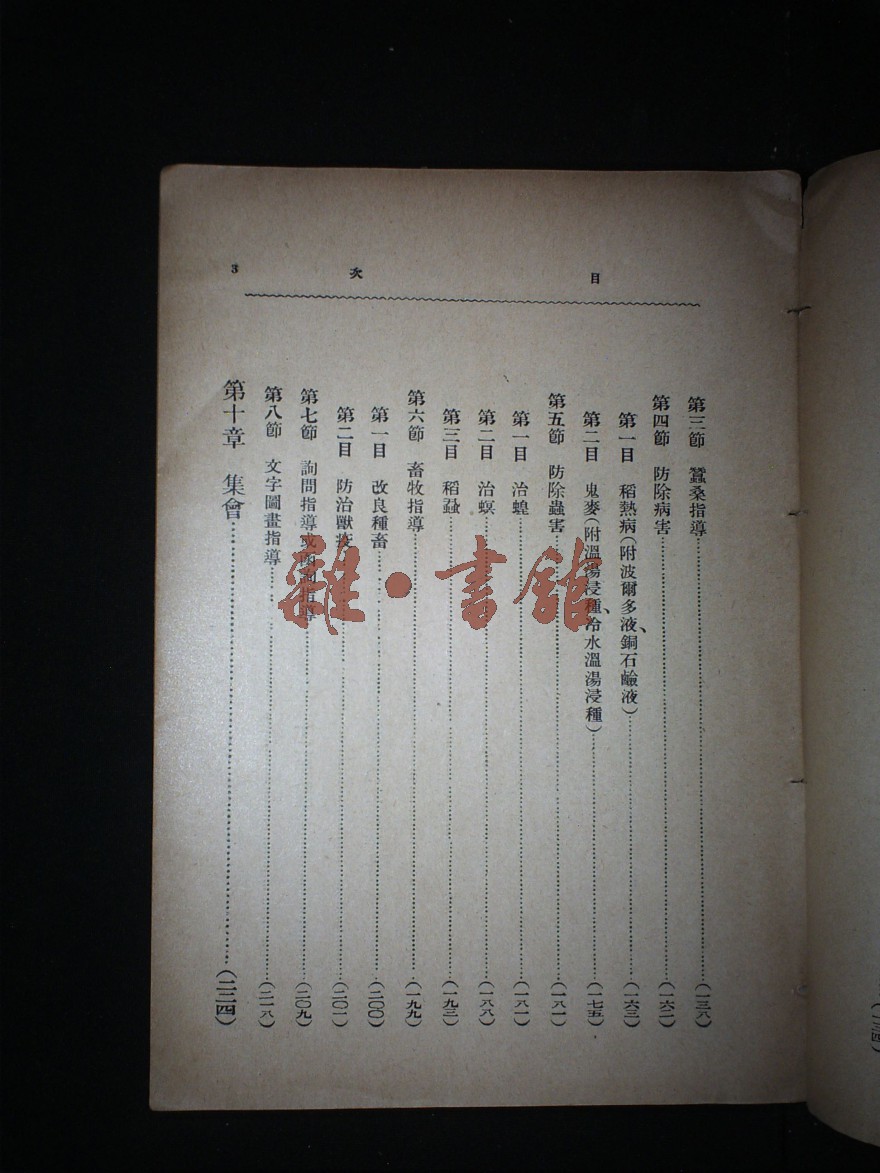 目次 3
第三節 蠶桑指導……(一三八)
第四節 防除病害……(一六二)
第一目 稻熱病(附波爾多液、銅石鹼液)……(一六三)
第二目 鬼麥(附溫湯浸種、冷水溫湯浸種)……(一七五)
第五節 防除蟲害……(一八一)
第一目 治蝗……(一八一)
第二目 治螟……(一八八)
第三目 稻蝨……(一九三)
第六節 畜牧指導……(一九九)
第一目 改良種畜……(二〇〇)
第二目 防治獸疫……(二〇一)
第七節 詢問指導或函詢指導……(二〇九)
第八節 文字圖畫指導……(二一八)
第十章 集會……(二二四)
雜·書館